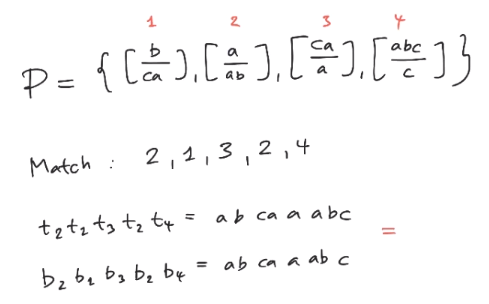 1 2 3 4
P = { [b/ca], [a/ab], [ca/a], [abc/c] }
Match : 2, 1, 3, 2, 4
t₂ t₁ t₃ t₂ t₄ = a b ca a abc
=
b₂ b₁ b₃ b₂ b₄ = ab ca a ab c